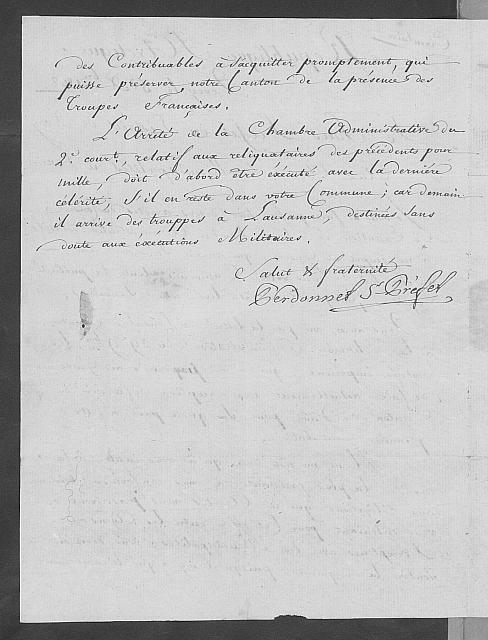 des Contribuables à s'acquitter promptement, qui
puisse préserver notre Canton de la présence des
Troupes Françaises.
L'Arrêté de la Chambre Administrative du
2.e court, relatif aux reliquataires des précédents pour
mille, doit d'abord être éxécuté avec la dernière
célérité, s'il en reste dans votre Commune; car demain
il arrive des trouppes à Lausanne, destinées sans
doute aux éxécutions Militaires.
Salut & fraternité
Perdonnet S.t Préfet